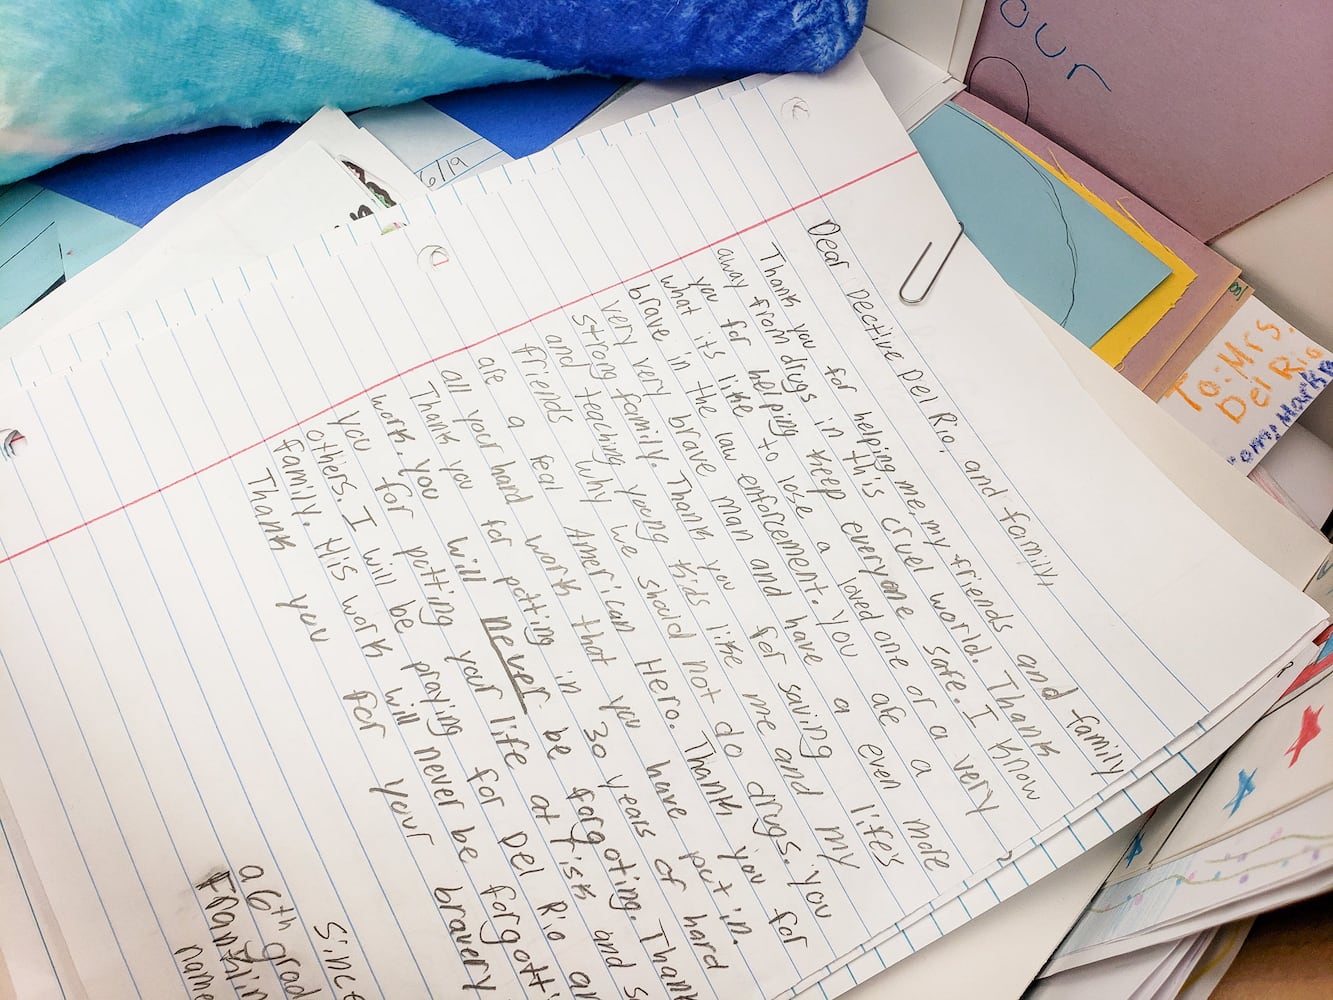 our
6/19
To: Mrs.
Del Rio
Dear Dective Del Rio, and family,
Thank you for helping me, my friends and family
away from drugs in this cruel world. Thank
you for helping keep everyone safe. I know
what its like to lose a loved one or a very
brave in the law enforcement. You are even more
very very brave man and have a
strong family. Thank you for saving life's
and teaching young kids like me and my
friends why we should not do drugs. You
are a real American Hero. Thank you for
all your hard work that you have put in.
Thank you for putting in 30 years of hard
work. You will never be forgoting. Thank
you for putting your life at risk and s
others. I will be praying for Del Rio an
family. His work will never be forgott
Thank you for your bravery
Since
a 6th grad
Franklin
name